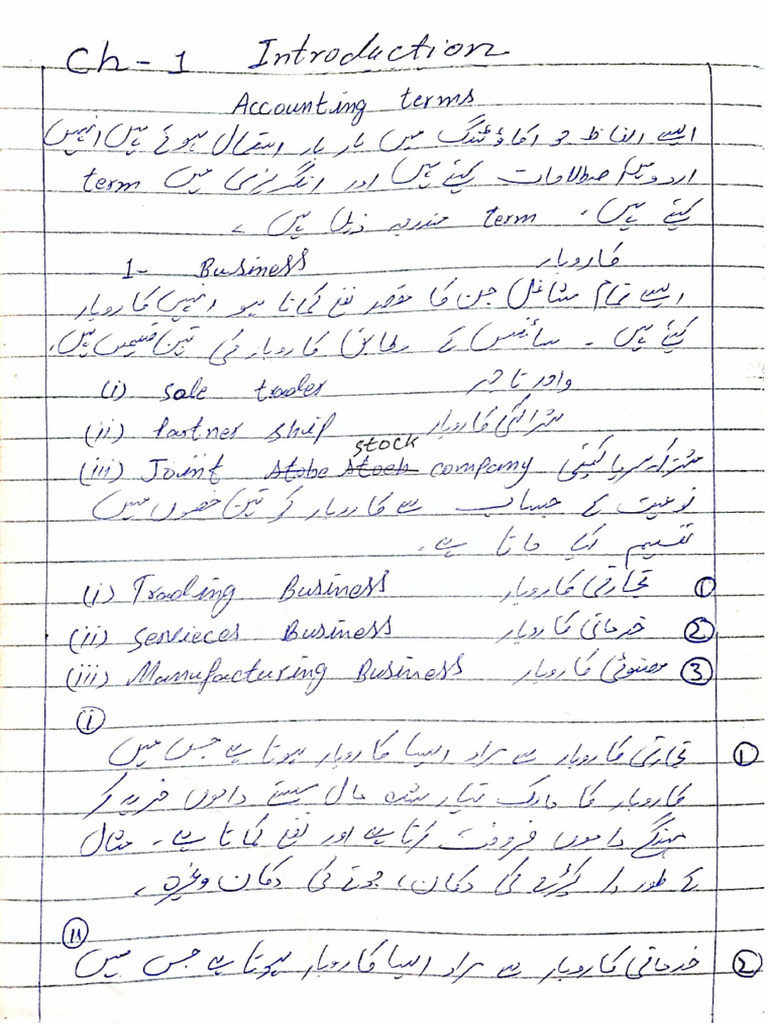 Ch - 1 Introduction
Accounting terms
ایسے الفاظ جو اکاؤنٹنگ میں بار بار استعمال ہوتے ہیں انہیں
اردو میں اصطلاحات کہتے ہیں اور انگریزی میں term
کہتے ہیں۔ term مندرجہ ذیل ہیں۔
1- Business کاروبار
ایسے تمام مشاغل جن کا مقصد نفع کمانا ہو انہیں کاروبار
کہتے ہیں ۔ سائنس کے مطابق کاروبار کی تین قسمیں ہیں۔
(i) sole trader واحد تاجر
(ii) Partner ship شراکتی کاروبار
(iii) Joint stock company مشترکہ کمپنی
نوعیت کے حساب سے کاروبار کو تین حصوں میں
تقسیم کیا جاتا ہے۔
(i) Trading Business تجارتی کاروبار ①
(ii) Servieces Business خدماتی کاروبار ②
(iii) Manufacturing Business مصنوعی کاروبار ③
ⓘ
① تجارتی کاروبار سے مراد ایسا کاروبار ہوتا ہے جس میں
کاروبار کا مالک تیار شدہ مال سستے داموں خرید کر
مہنگے داموں فروخت کرتا ہے اور نفع کماتا ہے۔ مثال
کے طور پر کپڑے کی دکان، جوتے کی دکان وغیرہ۔
(ii)
② خدماتی کاروبار سے مراد ایسا کاروبار ہوتا ہے جس میں